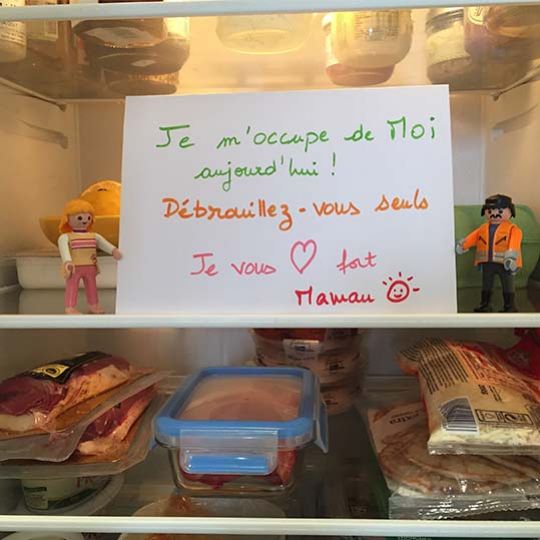 Je m'occupe de Moi
aujourd'hui !
Débrouillez-vous seuls
Je vous ♡ fort
Maman
extra